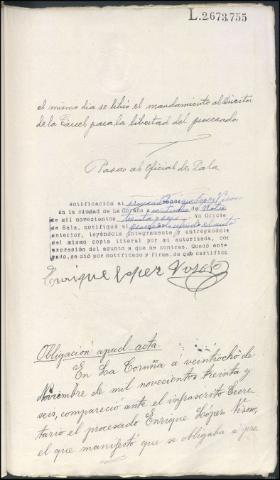 L.2673,755
el mismo dia se libró el mandamiento al Director
de la Carcel para la libertad del procesado
Pasas al Oficial de Sala
Notificación al procesado Enrique Lopez Visoso
En la ciudad de La Coruña a veintiocho de Nobre
de mil novecientos treinta y seis yo Oficial
de Sala, notifiqué el
anterior, leyéndole íntegramente y entregándole
del mismo copia literal por mi autorizada, con
expresión del asunto a que se contrae. Quedó ente-
rado, se dió por notificado y firma, de que certifico
Enrique López Visoso
Obligación apud acta.
En La Coruña á veintiocho de
Noviembre de mil novecientos treinta y
seis, compareció ante el infrascrito Secre-
tario el procesado Enrique López Visoso,
el que manifestó que se obligaba á pre